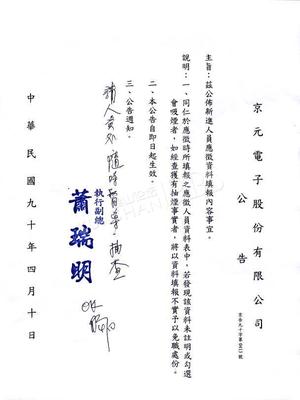 京元電子股份有限公司
公告
主旨：茲公佈新進人員應徵資料填報內容事宜。
說明：一、同仁於應徵時所填報之應徵人員資料表中，若發現該資料未註明或勾選
會吸煙者，如經查獲有抽煙事實者，將以資料填報不實予以免職處份。
二、本公告自即日起生效。
三、公告通知。
隨時督導、抽查
執行副總
蕭瑞明
OK
中華民國九十年四月十日